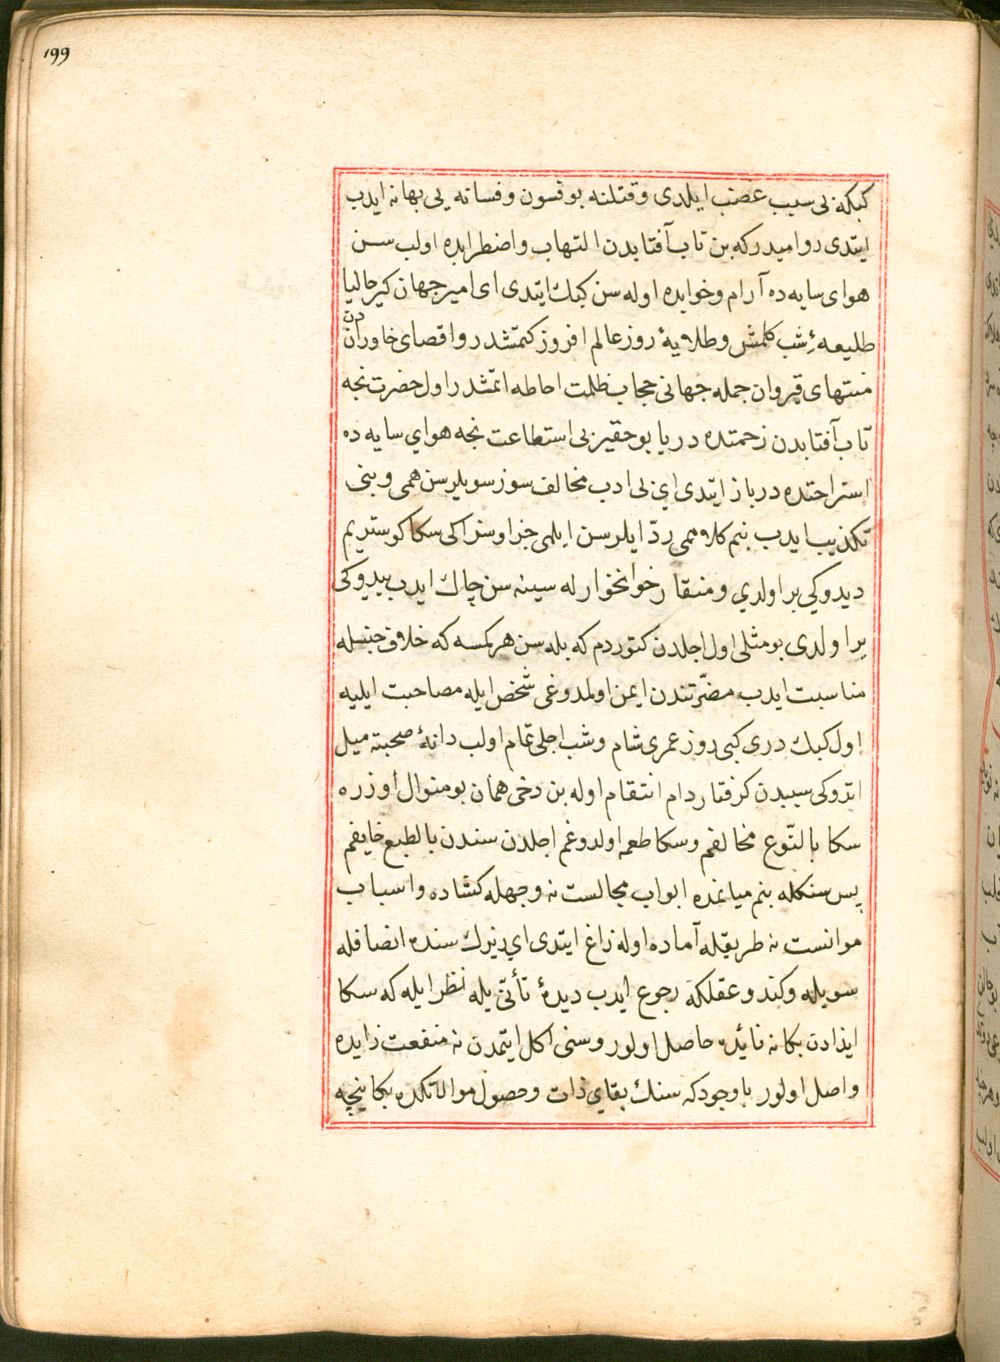 ۱۹۹
كبكه بى سبب غضب ايلدى و قتلنه بو فسون و فسانه يى بهانه ايدب
ايتدى روا ميدر كه بن تاب آفتابدن التهاب و اضطرابده اولب سن
هواى سايه ده آرام و خوابده اوله سن كبك ايتدى اى امير جهان كير حاليا
طليعهٔ شب كلمش و طلايهٔ روز عالم افروز كتمشدر و اقصاى خاوراندن
منتهاى قيروان جمله جهانى حجاب ظلمت احاطه اتمشدر اول حضرت نجه
تاب آفتابدن زحمتده در يا بو حقير بى استطاعت نجه هواي سايه ده
استراحتده در باز ايتدى اي بى ادب مخالف سوز سويلرسن همى و بنى
تكذيب ايدب بنم كلاممى ردّ ايلرسن ايلمى جزاوستراكى سكا كوستريم
ديدوكي بر اولدي و منقار خوانخوار له سينه سن چاك ايدب ييدوكى
بر اولدى بو مثلى اول اجلدن كتوردم كه بله سن هر كمسه كه خلاف جنسله
مناسبت ايدب مضرّتندن ايمن اولمدوغى شخص ايله مصاحبت ايليه
اول كبك درى كبى روز عمرى شام و شب اجلى تمام اولب دانهٔ صحبته ميل
اتدوكى سببدن كرفتار دام انتقام اوله بن دخى همان بو منوال اوزره
سكا بالنّوع مخالفم و سكا طعمه اولدوغم اجلدن سندن بالطبع خايفم
پس سنكله بنم ميانمده ابواب مجالست نه وجهله كشاده و اسباب
موانست نه طريقله آماده اوله زاغ ايتدى اي زيرك سنده انصافله
سويله و كندو عقلكه رجوع ايدب ديدهٔ تأنّى يله نظر ايله كه سكا
ايذادن بكا نه فائده حاصل اولور و سنى اكل ايتمدن نه منفعت زايده
واصل اولور باوجود كه سنك بقاي ذات و حصول موالاتكده بكا نيچه